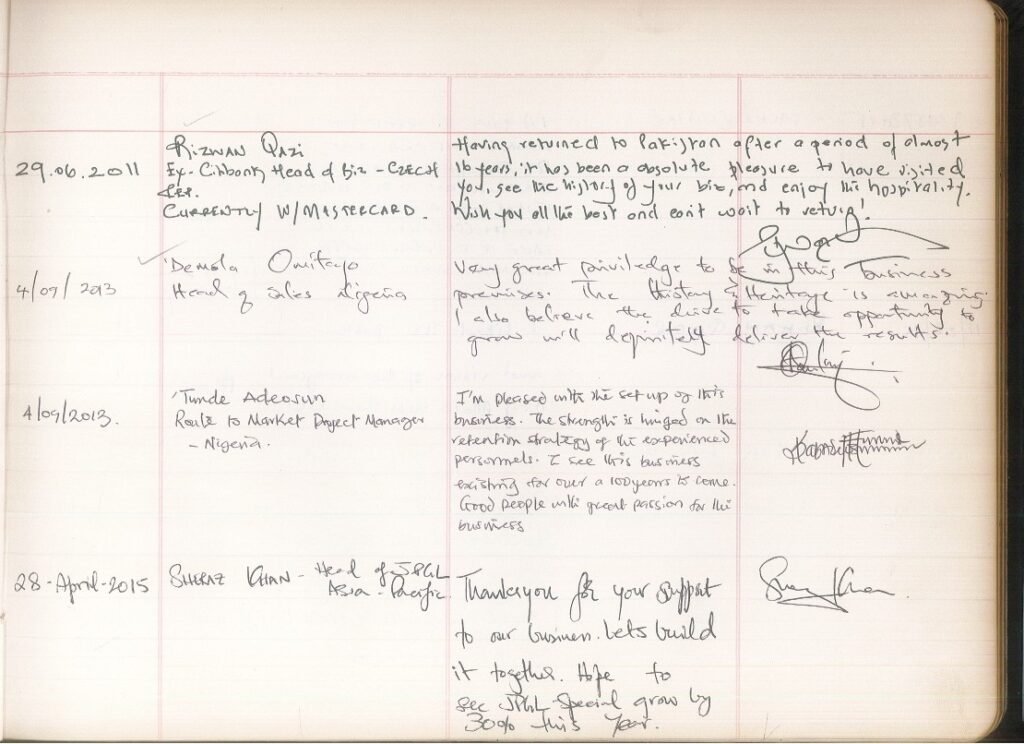 29.06.2011
RIZWAN QAZI
Ex-Citibank Head of Biz - CZECH
REP.
CURRENTLY W/MASTERCARD.
Having returned to Pakistan after a period of almost
16 years, it has been a absolute pleasure to have visited
you, see the history of your biz, and enjoy the hospitality.
Wish you all the best and can't wait to return!
4/09/2013
Demola Omitayo
Head of Sales Nigeria
Very great priviledge to be in this business
premises. The history & Heritage is amazing.
I also believe the drive to take opportunity to
grow will definitely deliver the results.
4/09/2013.
Tunde Adeosun
Route to Market Project Manager
- Nigeria.
I'm pleased with the set up of this
business. The strength is hinged on the
retention strategy of the experienced
personnels. I see this business
existing for over a 100 years to come.
Good people with great passion for the
business
28-April-2015
SHERAZ KHAN - Head of JPGL
Asia-Pacific.
Thankyou for your support
to our business. Lets build
it together. Hope to
see JPGL Special grow by
30% this Year.